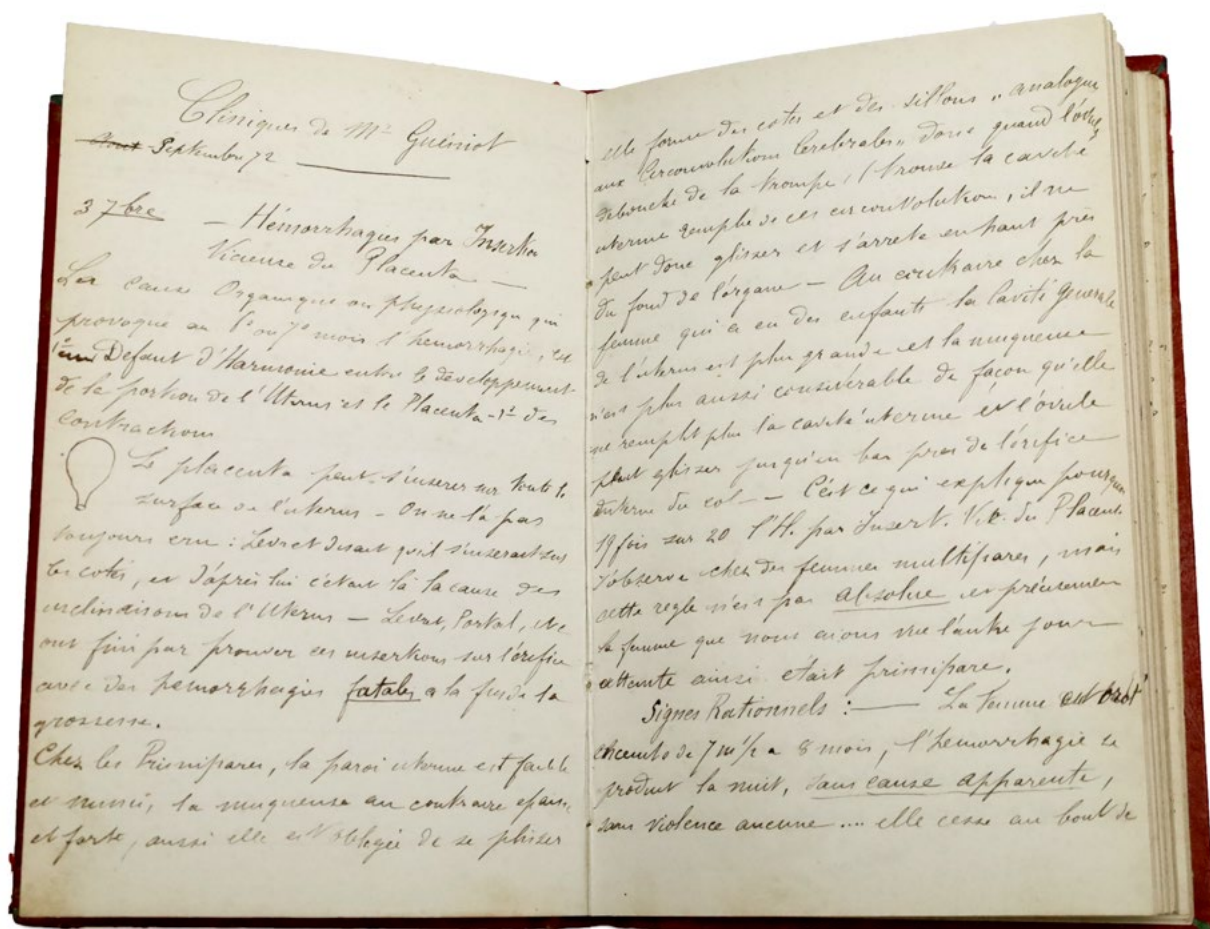 Cliniques de Mr Guéniot
Août Septembre 72
3 7bre
— Hémorrhagies par Insertion
Vicieuse du Placenta —
La cause Organique ou physiologique qui
provoque au ou 7e mois l'hemorrhagie, est
1° un Defaut d'Harmonie entre le développement
de la portion de l'Uterus et le Placenta - des
contractions
Le placenta peut s'inserer sur toute la
surface de l'uterus - On ne l'a pas
toujours cru : Levret disait qu'il s'inserait sur
les cotés, et d'après lui c'était là la cause des
inclinaisons de l'Uterus — Levret, Portal, etc
ont fini par prouver ces insertions sur l'orifice
avec des hemorrhagies fatales a la fin de la
grossesse.
Chez les Primipares, la paroi uterine est faible
et mince, la muqueuse au contraire epaisse
et forte, aussi elle est obligée de se plisser
elle forme des cotes et des sillons „ analogues
aux Circonvolutions Cerebrales „ donc quand l'ovule
debouche de la trompe, il trouve la cavité
uterine remplie de ces circonvolutions, il ne
peut donc glisser et s'arrete en haut près
du fond de l'organe — Au contraire chez la
femme qui a eu des enfants la Cavité generale
de l'uterus est plus grande et la muqueuse
n'est plus aussi considérable de façon qu'elle
ne remplit plus la cavité uterine et l'ovule
peut glisser jusqu'en bas pres de l'orifice
interne du col — C'est ce qui explique pourquoi
19 fois sur 20 l'H. par Insert. Vic. du Placent.
s'observe chez des femmes multipares, mais
cette regle n'est pas absolue et précisement
la femme que nous avons vue l'autre jour
atteinte ainsi était primipare.
Signes Rationnels : — La femme est
enceinte de 7 m 1/2 a 8 mois, l'hemorrhagie se
produit la nuit, sans cause apparente,
sans violence aucune .... elle cesse au bout de